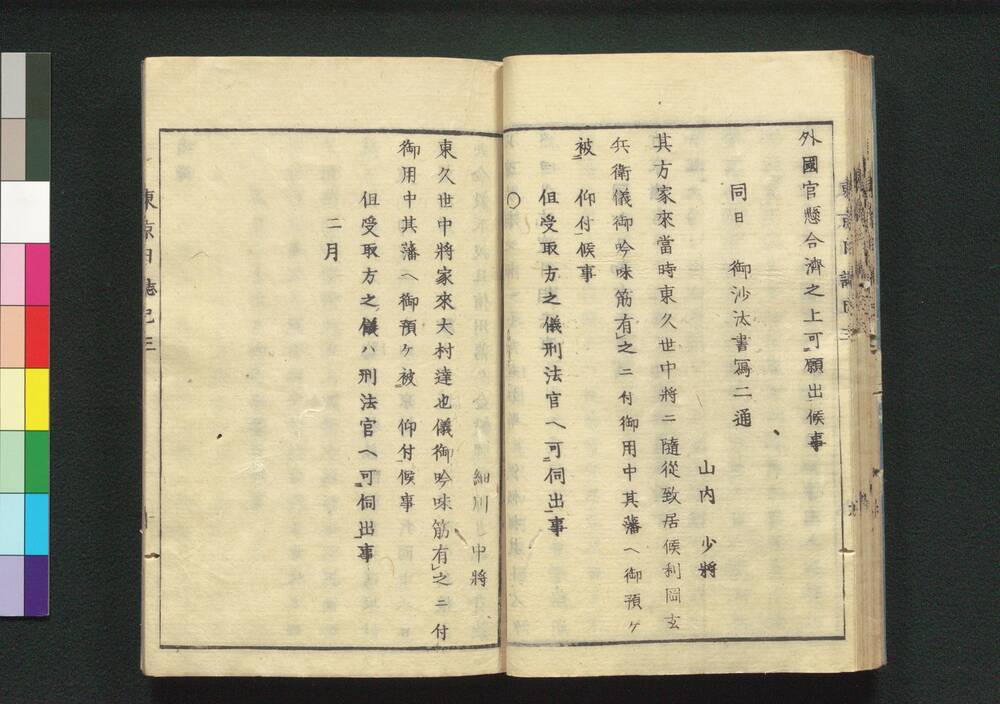 外國官懸合濟之上可願出候事
同日 御沙汰書寫二通
山内 少將
其方家來當時東久世中將ニ隨從致居候利岡玄
兵衛儀御吟味筋有之ニ付御用中其藩ヘ御預ケ
被 仰付候事
但受取方之儀刑法官ヘ可伺出事
○
細川 中將
東久世中將家來大村達也儀御吟味筋有之ニ付
御用中其藩ヘ御預ケ被 仰付候事
但受取方之儀ハ刑法官ヘ可伺出事
二月
東京日誌己三